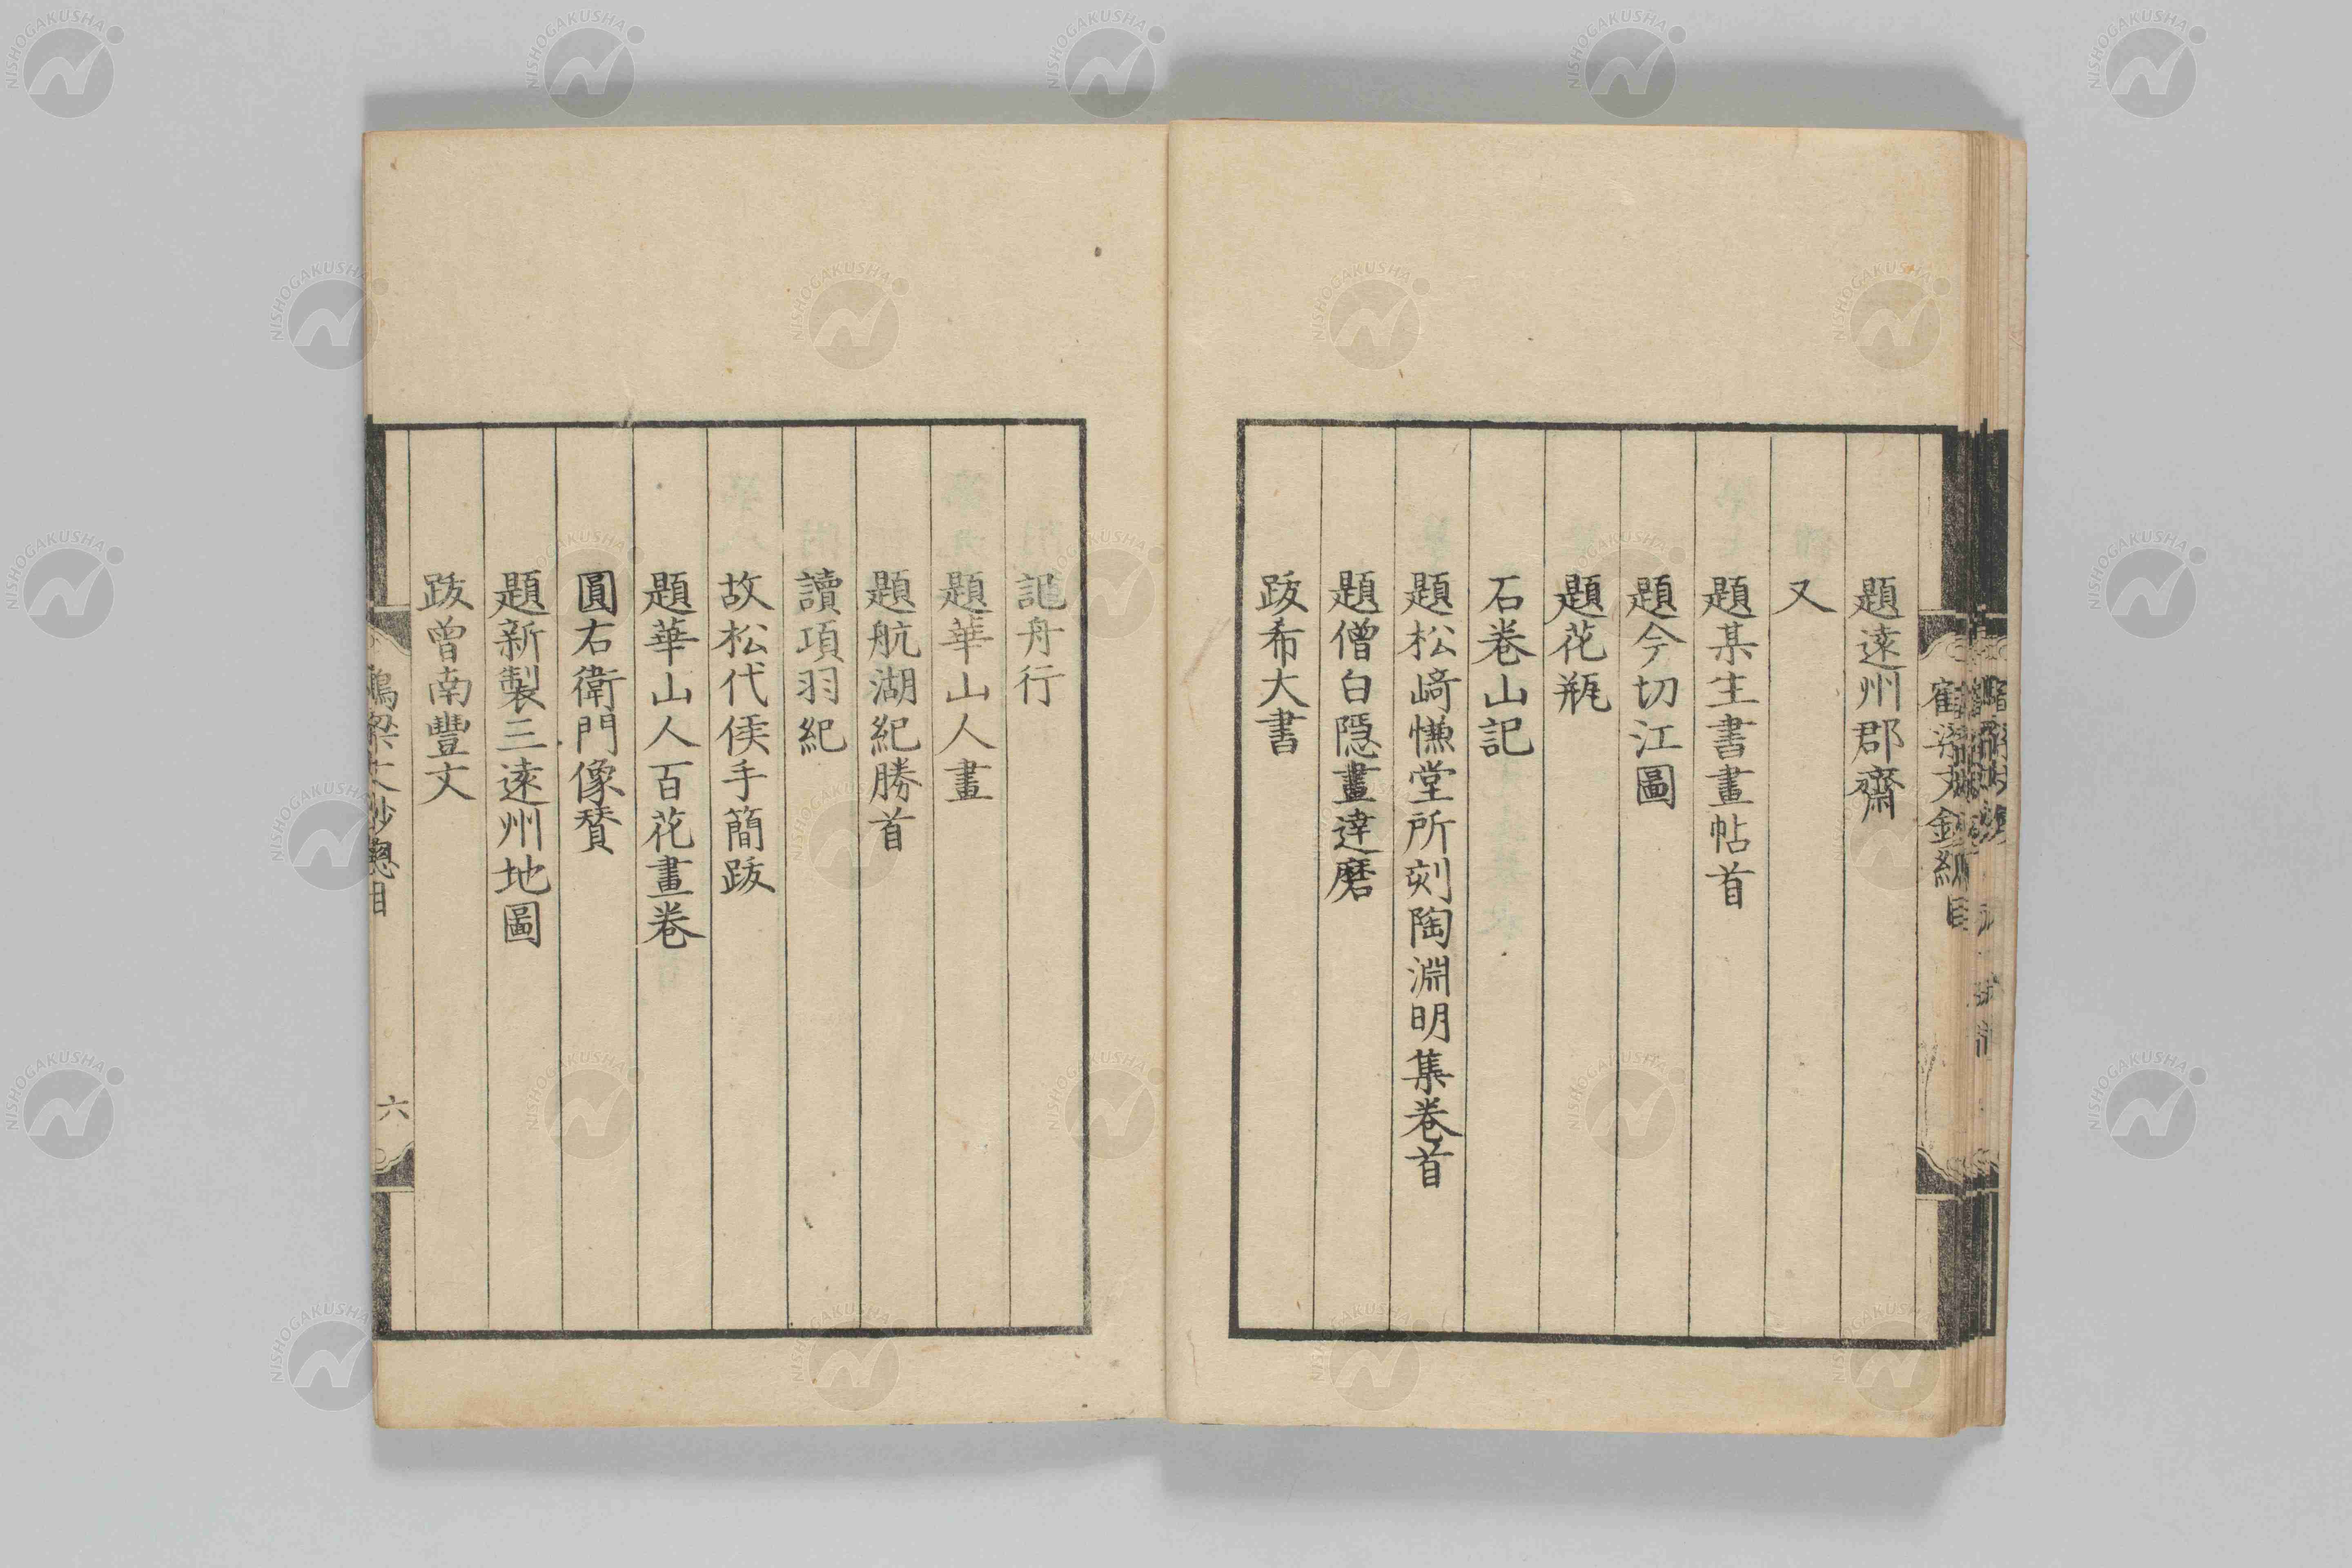 題遠州郡齋
又
題某生書畫帖首
題今切江圖
題花瓶
石卷山記
題松﨑慊堂所刻陶淵明集卷首
題僧白隱畫達磨
跋希大書
記舟行
題華山人畫
題航湖紀勝首
讀項羽紀
故松代侯手簡跋
題華山人百花畫卷
圓右衛門像贊
題新製三遠州地圖
跋曾南豐文
六
NISHOGAKUSHA